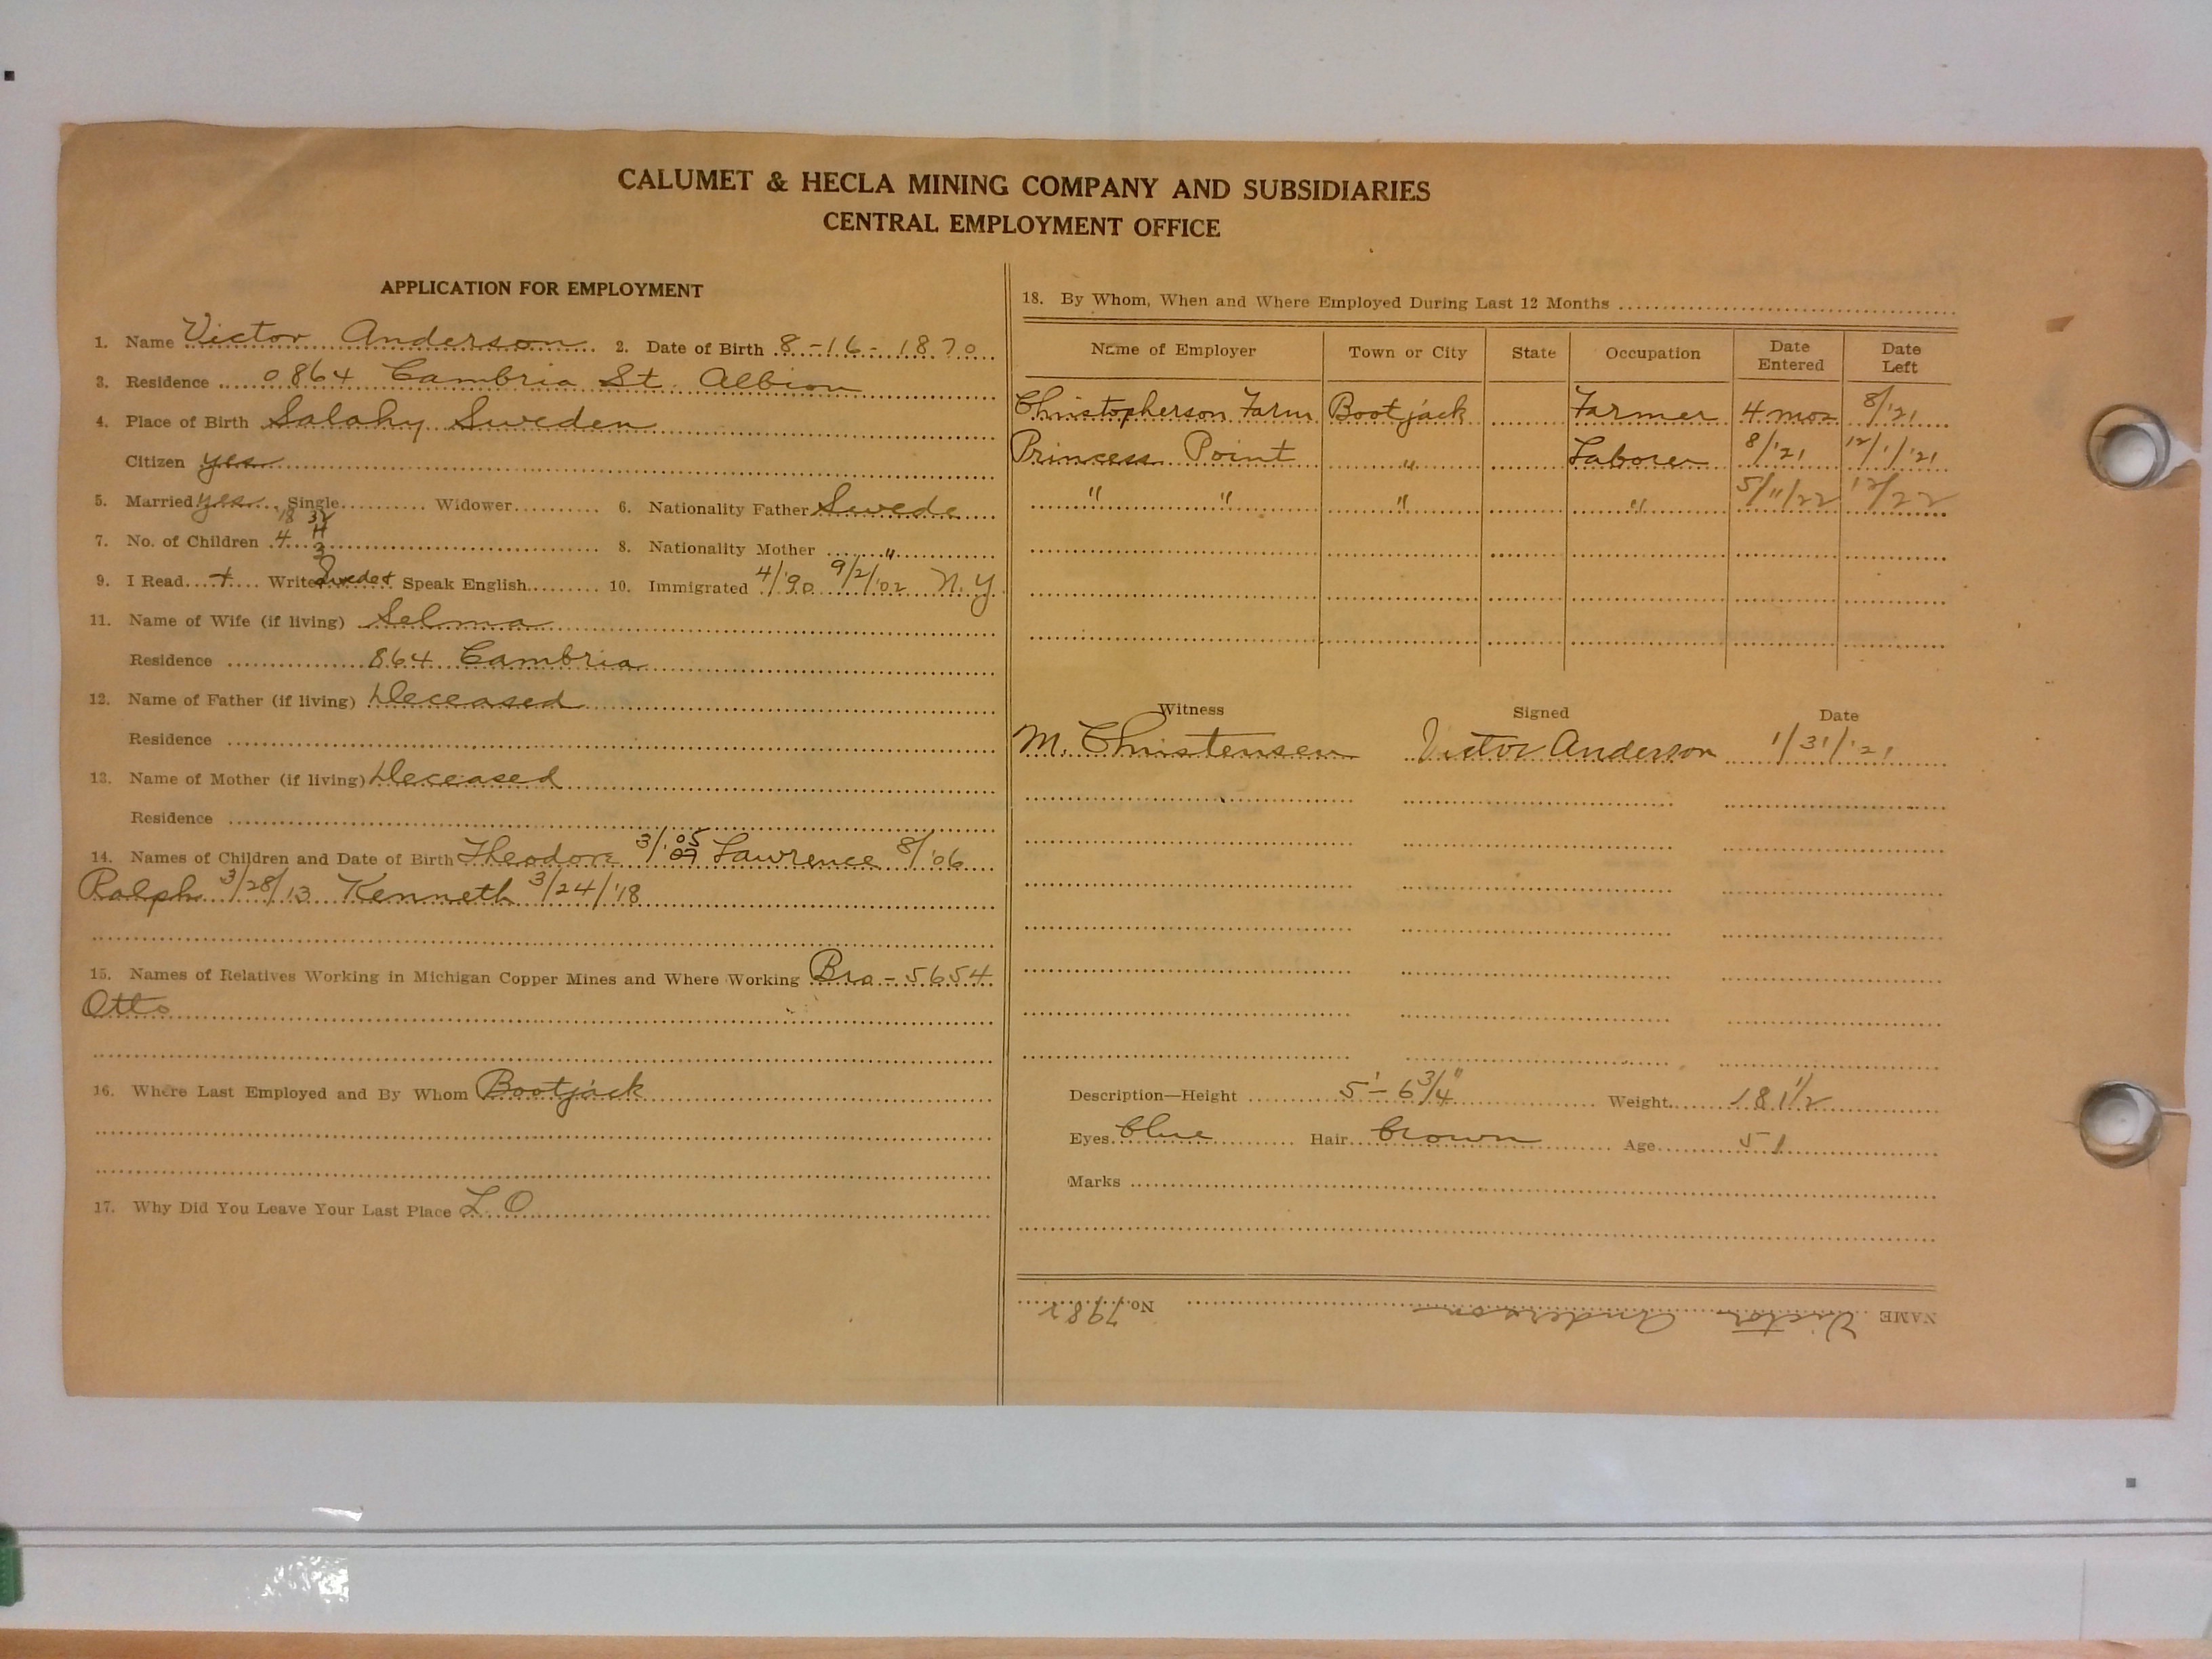 CALUMET & HECLA MINING COMPANY AND SUBSIDIARIES
CENTRAL EMPLOYMENT OFFICE
APPLICATION FOR EMPLOYMENT
1. Name Victor Anderson 2. Date of Birth 8-16-1870
3. Residence 0864 Cambria St. Albion
4. Place of Birth Salahy Sweden
Citizen yes
5. Married yes Single Widower 6. Nationality Father Swede
7. No. of Children 4 8. Nationality Mother "
9. I Read + Write Speak English 10. Immigrated 4/'90 9/2/'02 N.Y
11. Name of Wife (if living) Selma
Residence 864 Cambria
12. Name of Father (if living) Deceased
Residence
13. Name of Mother (if living) Deceased
Residence
14. Names of Children and Date of Birth Theodore 3/'05 Lawrence 8/'06
Ralph 3/28/13 Kenneth 3/24/'18
15. Names of Relatives Working in Michigan Copper Mines and Where Working Bro - 5654
Otto
16. Where Last Employed and By Whom Bootjack
17. Why Did You Leave Your Last Place L.O
18. By Whom, When and Where Employed During Last 12 Months
Name of Employer Town or City State Occupation Date Entered Date Left
Christopherson Farm Bootjack Farmer 4 mos 8/'21
Princess Point " Laborer 8/'21 12/1/'21
" " " " 5/11/22 12/22
Witness Signed Date
M. Christensen Victor Anderson 1/31/'21
Description—Height 5'-6 3/4" Weight 181 1/2
Eyes blue Hair brown Age 51
Marks
NAME Victor Anderson No. 7982